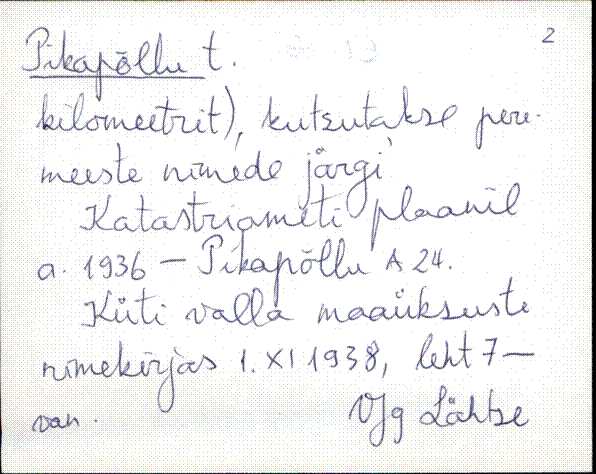 2
Pikapõllu t.
kilomeetrit), kutsutakse pere-
meeste nimede järgi
Katastriameti plaanil
a. 1936 — Pikapõllu A 24.
Küti valla maaüksuste
nimekirjas 1. XI 1938, leht 7 —
van. VJg Lähtse